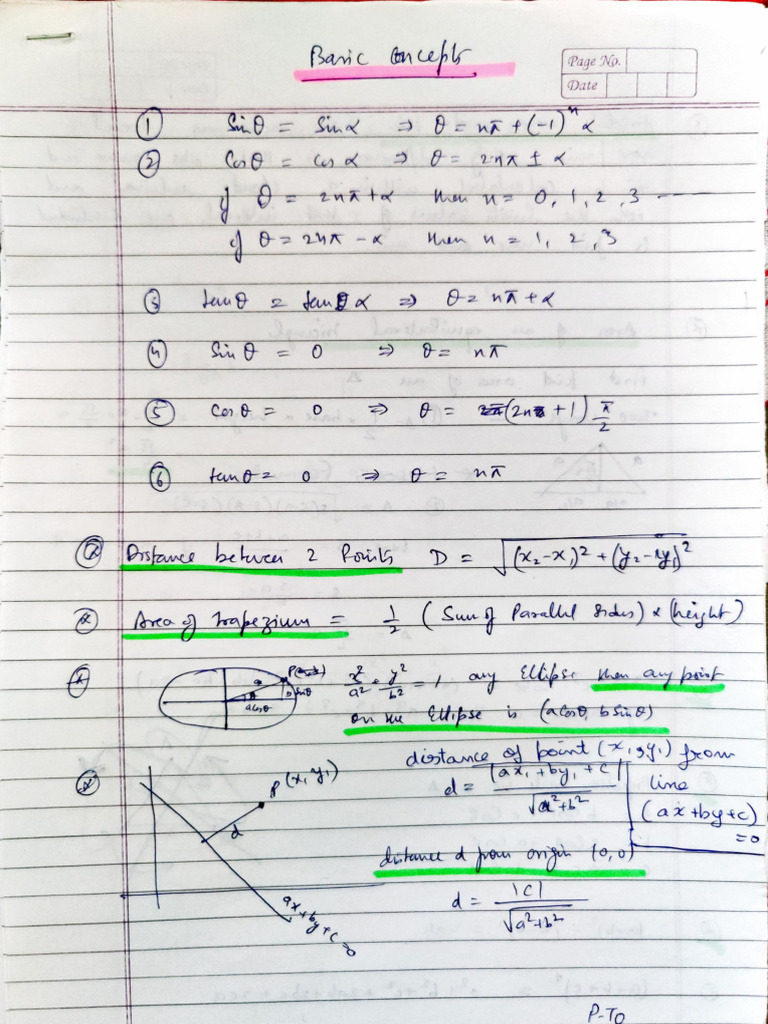 Basic Concepts
Page No.
Date
① Sinθ = Sinα ⇒ θ = nπ + (-1)ⁿ α
② Cosθ = Cos α ⇒ θ = 2nπ ± α
if θ = 2nπ + α then n = 0, 1, 2, 3 -----
if θ = 2nπ - α then n = 1, 2, 3
③ tanθ = tan α ⇒ θ = nπ + α
④ Sin θ = 0 ⇒ θ = nπ
⑤ Cosθ = 0 ⇒ θ = (2n + 1) π/2
⑥ tanθ = 0 ⇒ θ = nπ
Distance between 2 Points D = √((x₂-x₁)² + (y₂-y₁)²)
Area of trapezium = 1/2 (Sum of Parallel Sides) × (height)
x²/a² + y²/b² = 1 any Ellipse then any point
on the Ellipse is (a cosθ, b sinθ)
a
P
θ
b Sinθ
a cosθ
distance of point (x₁, y₁) from
line
(ax+by+c)
=0
d = |ax₁ + by₁ + c| / √(a²+b²)
P (x₁, y₁)
d
ax + by + c = 0
distance d from origin (0,0)
d = |c| / √(a²+b²)
P-TO